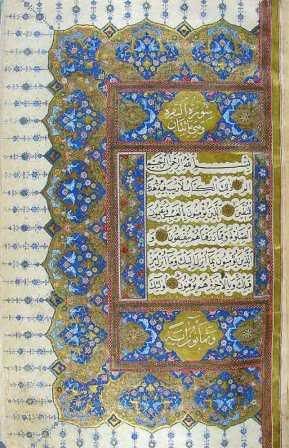 سورة البقرة
وهي مائتان
بسم الله الرحمن الرحيم
الم ذلك الكتاب لا ريب فيه هدى
للمتقين الذين يؤمنون بالغيب ويقيمون
الصلوة ومما رزقناهم ينفقون
والذين يؤمنون بما أنزل إليك وما أنزل من
قبلك وبالآخرة هم يوقنون أولئك
وثمانون آية